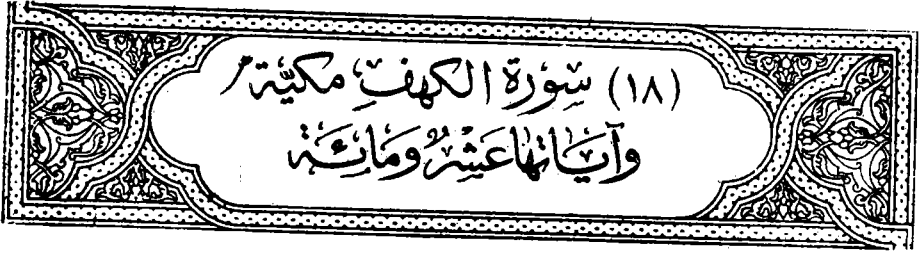 (١٨) سُورَة الكهفِ مكيَّة
وَآيَاتها عَشْرٌ وَمَائَة